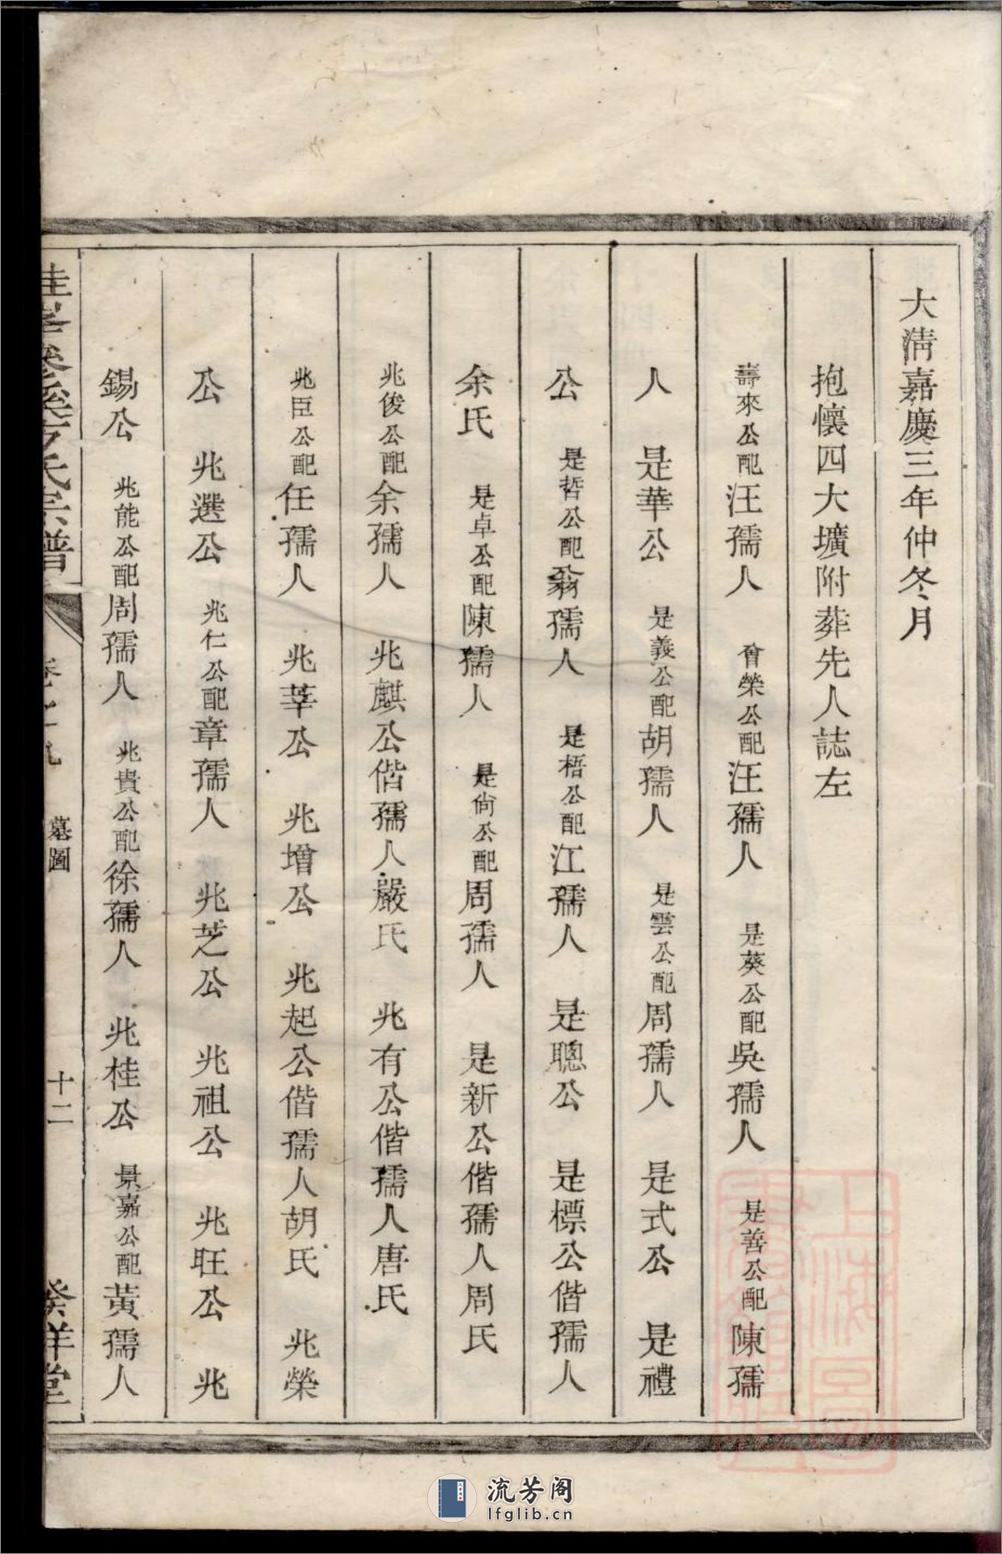 大淸嘉慶三年仲冬月
抱懷四大壙附葬先人誌左
壽來公配汪孺人　會榮公配汪孺人　是葵公配吳孺人　是善公配陳孺
人　是華公　是義公配胡孺人　是雲公配周孺人　是式公　是禮
公　是哲公配翁孺人　是梧公配江孺人　是聰公　是標公偕孺人
余氏　是卓公配陳孺人　是尙公配周孺人　是新公偕孺人周氏
兆俊公配余孺人　兆麒公偕孺人嚴氏　兆有公偕孺人唐氏
兆臣公配任孺人　兆莘公　兆增公　兆起公偕孺人胡氏　兆榮
公　兆選公　兆仁公配章孺人　兆芝公　兆祖公　兆旺公　兆
錫公　兆能公配周孺人　兆貴公配徐孺人　兆桂公　景嘉公配黃孺人
氏宗譜
墓圖
十二
堂
流芳阁
lfglib.cn